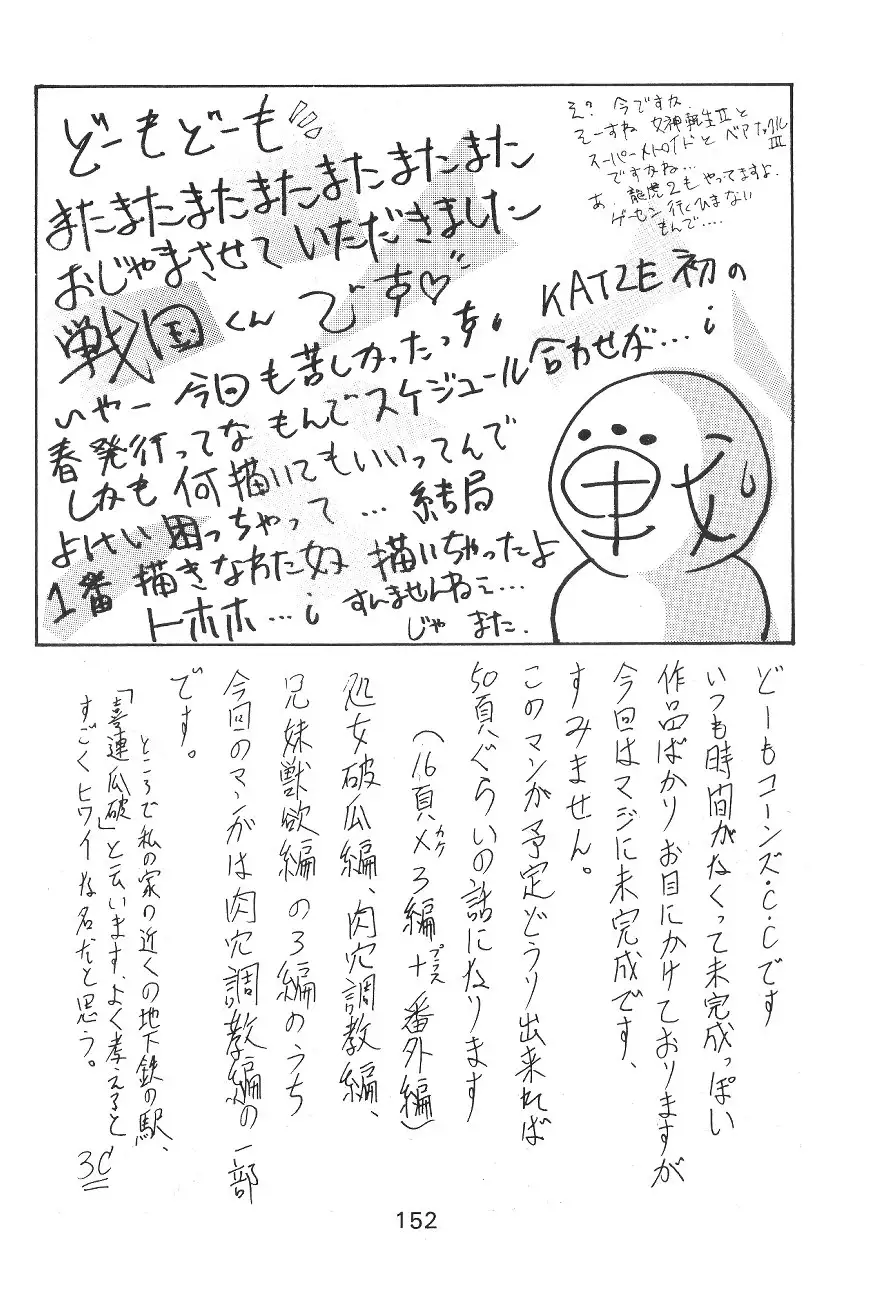 どーもどーも
またまたまたまたまたまたまた
おじゃまさせていただきました
戦国くんです♡
いやー今回も苦しかったっす。KATZE初の
春発行ってなもんでスケジュール合わせが…
しかも何描いてもいいってんで
よけい困っちゃって…結局
1番描きなれた奴描いちゃったよ
トホホ…すんませんねェ…
じゃまた.
え?今ですか.
そーすね女神転生Ⅱと
スーパーメトロイドとベアナックルⅢ
ですかね…
あ.龍虎2もやってますよ.
ゲーセン行くひまない
もんで….
どーもコーンズ・C・Cです
いつも時間がなくって未完成っぽい
作品ばかりお目にかけておりますが
今回はマジに未完成です、
すみません。
このマンガ予定どうり出来れば
50頁ぐらいの話になります
(16頁×カケ3編+プラス番外編)
処女破瓜編、肉穴調教編、
兄妹獣欲編の3編のうち
今回のマンガは肉穴調教編の一部
です。
ところで私の家の近くの地下鉄の駅、
「喜連瓜破」と云います、よく考えると
すごくヒワイな名だと思う。
3C
152